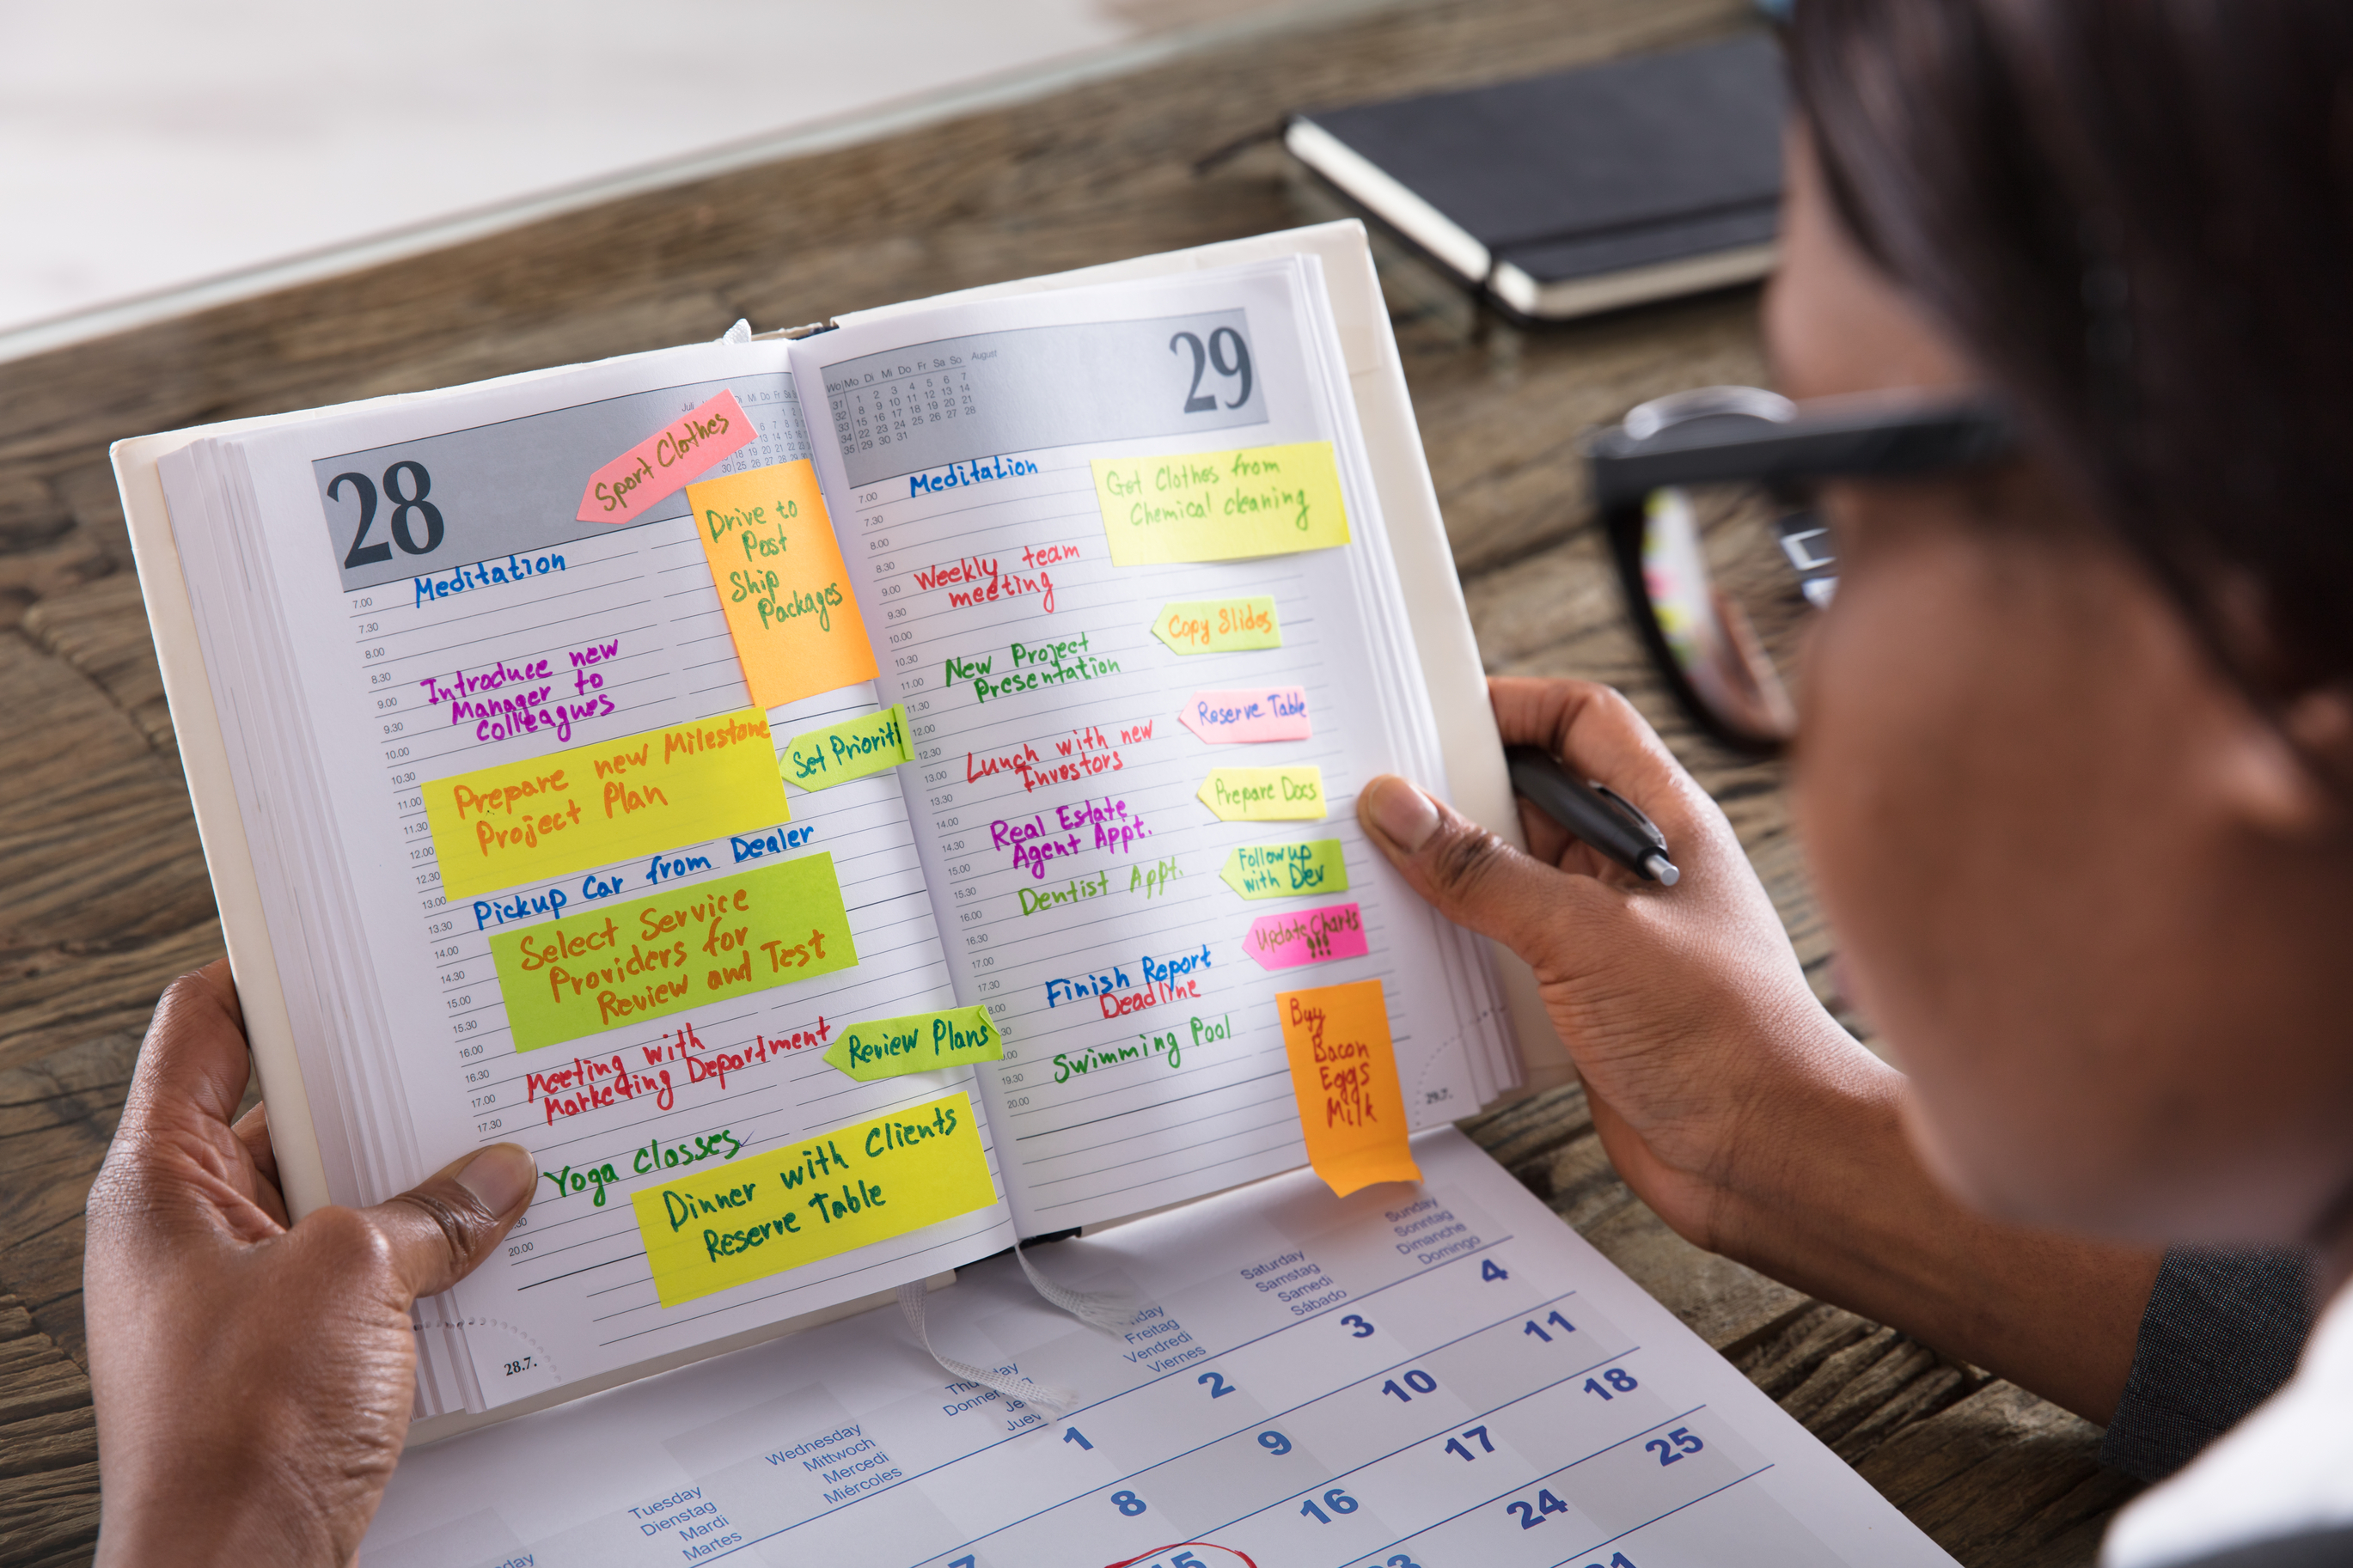 28
Juli
Mi Do Fr Sa
Sport Clothes
Drive to
Post
Ship
Packages
7.00
Meditation
7.30
8.00
8.30
Introduce new
9.00
Manager to
9.30
Colleagues
10.00
10.30
Prepare new Milestone
11.00
Project Plan
11.30
Set Prioriti
12.00
12.30
13.00
Pickup Car from Dealer
13.30
14.00
Select Service
14.30
Providers for
15.00
Review and Test
15.30
16.00
16.30
Meeting with
17.00
Marketing Department
17.30
Review Plans
Yoga Classes
Dinner with Clients
Reserve Table
20.00
28.7.
Wo Mo Di Mi Do Fr Sa So August
31 1 2 3 4 5 6 7
32 8 9 10 11 12 13 14
33 15 16 17 18 19 20 21
34 22 23 24 25 26 27 28
35 29 30 31
29
7.00
Meditation
7.30
Get Clothes from
Chemical cleaning
8.00
8.30
Weekly team
9.00
meeting
9.30
Copy Slides
10.00
10.30
New Project
11.00
Presentation
11.30
Reserve Table
12.00
12.30
Lunch with new
13.00
Investors
13.30
Prepare Docs
14.00
Real Estate
14.30
Agent Appt.
15.00
Follow up
with Dev
15.30
Dentist Appt.
16.00
Update Charts
!!!
16.30
17.00
17.30
Finish Report
Deadline
Swimming Pool
19.30
20.00
Buy
Bacon
Eggs
Milk
29.7.
Tuesday
Dienstag
Mardi
Martes
Wednesday
Mittwoch
Mercedi
Miércoles
Freitag
Vendredi
Viernes
Saturday
Samstag
Samedi
Sábado
Sunday
Sonntag
Dimanche
Domingo
1 2 3 4
8 9 10 11
16 17 18
24 25